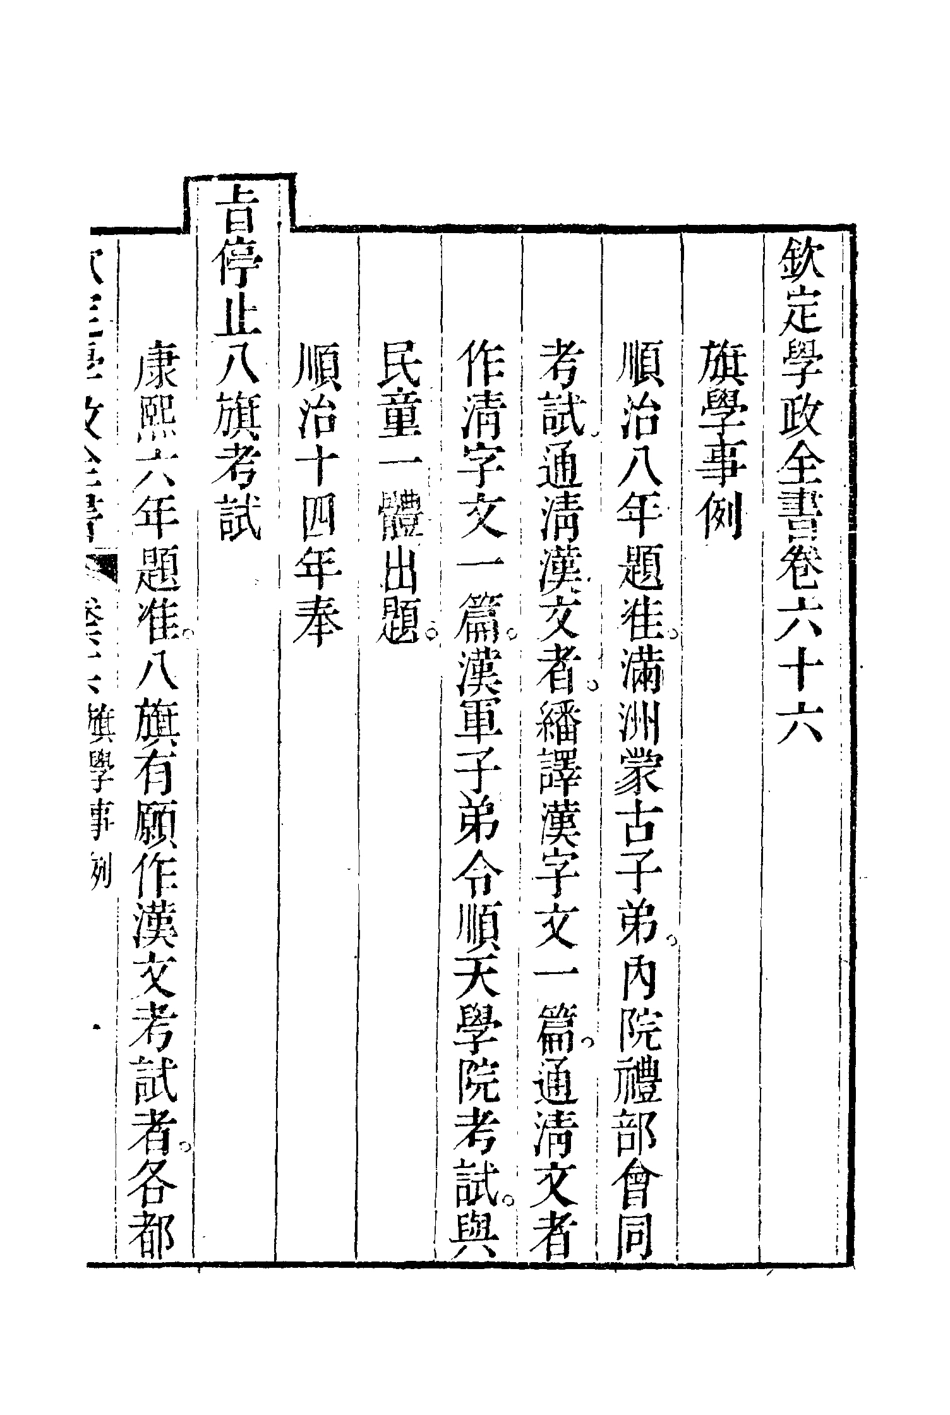 欽定學政全書卷六十六
旗學事例
順治八年題准。滿洲蒙古子弟。內院禮部會同
考試。通淸漢文者。繙譯漢字文一篇。通淸文者
作淸字文一篇。漢軍子弟令順天學院考試。與
民童一體出題。
順治十四年奉
旨停止八旗考試
康熙六年題准。八旗有願作漢文考試者。各都
欽定學政全書 卷六十六 旗學事例